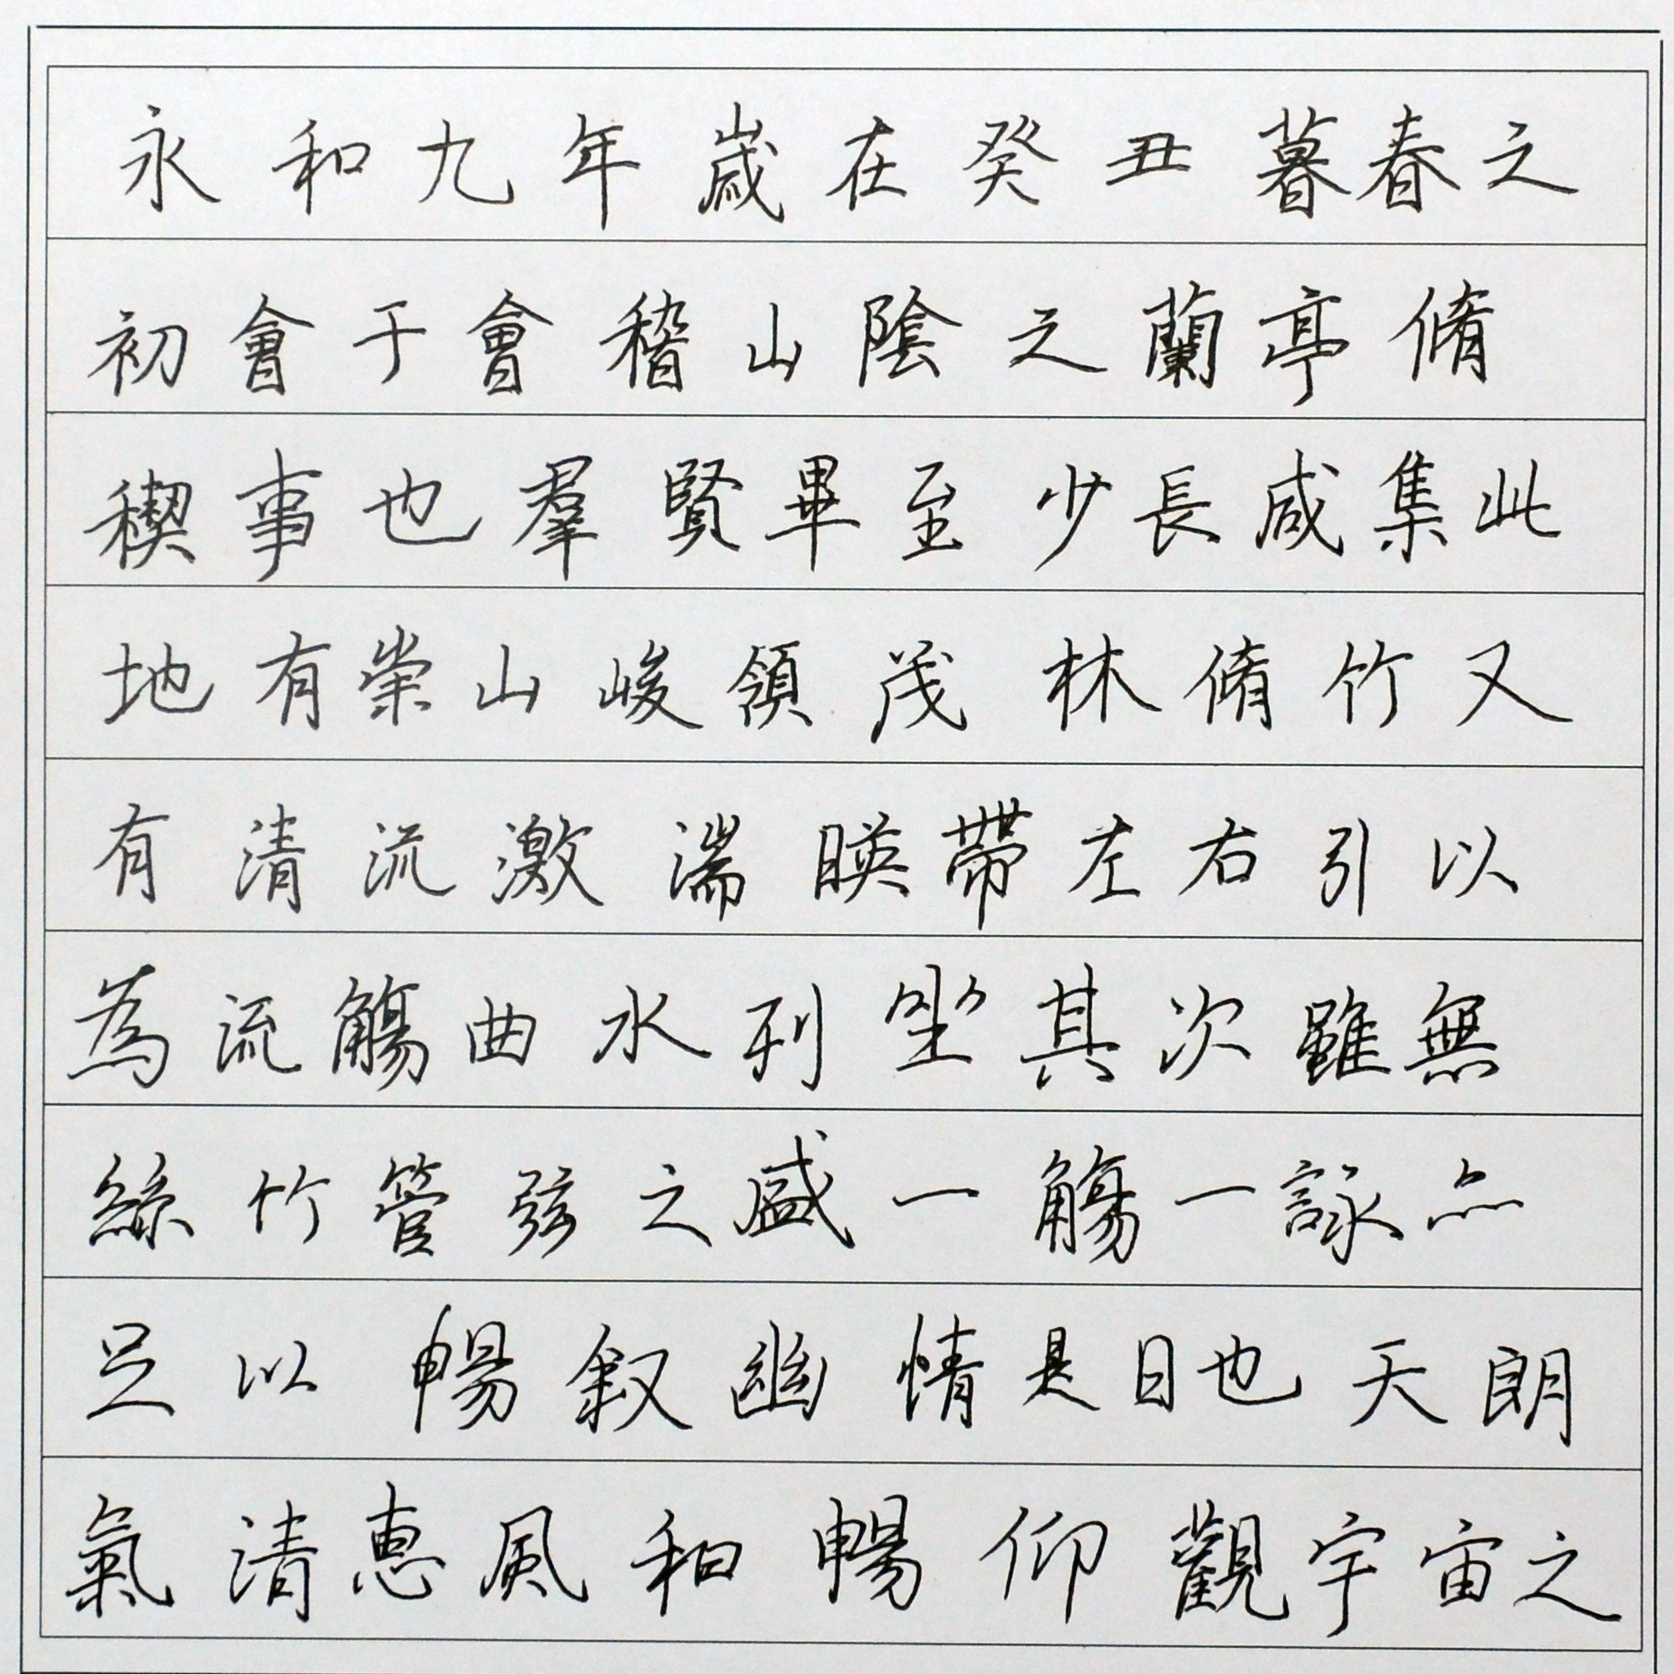 永和九年歲在癸丑暮春之
初會于會稽山陰之蘭亭脩
稧事也羣賢畢至少長咸集此
地有崇山峻領茂林脩竹又
有清流激湍暎帶左右引以
為流觴曲水列坐其次雖無
絲竹管弦之盛一觴一詠亦
足以暢叙幽情是日也天朗
氣清惠風和暢仰觀宇宙之